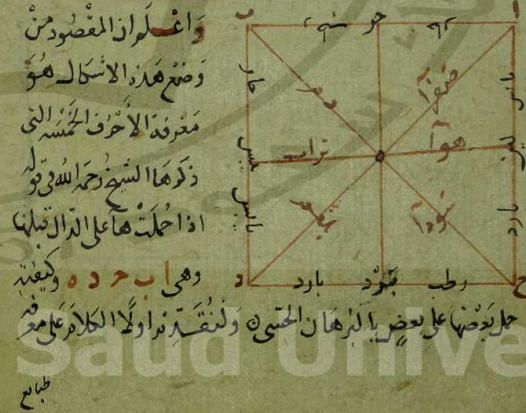 واعلم ان المقصود من
وضع هذه الاشكال هو
معرفة الاحرف الخمسه التى
ذكرها الشيخ رحمه الله فى قوله
اذا حملت هآ على الدال قبلها
وهى ا ب ح د ه وكيفية
حمل بعضها على بعض بالبرهان الحسى ولنقدم اولا الكلام على معرفة
طبايع
ا
ب
صفرآ
دم
هوآ
تراب
سودآ
يابس
بارد
رطب
بارد
د
ح
Saud Unive